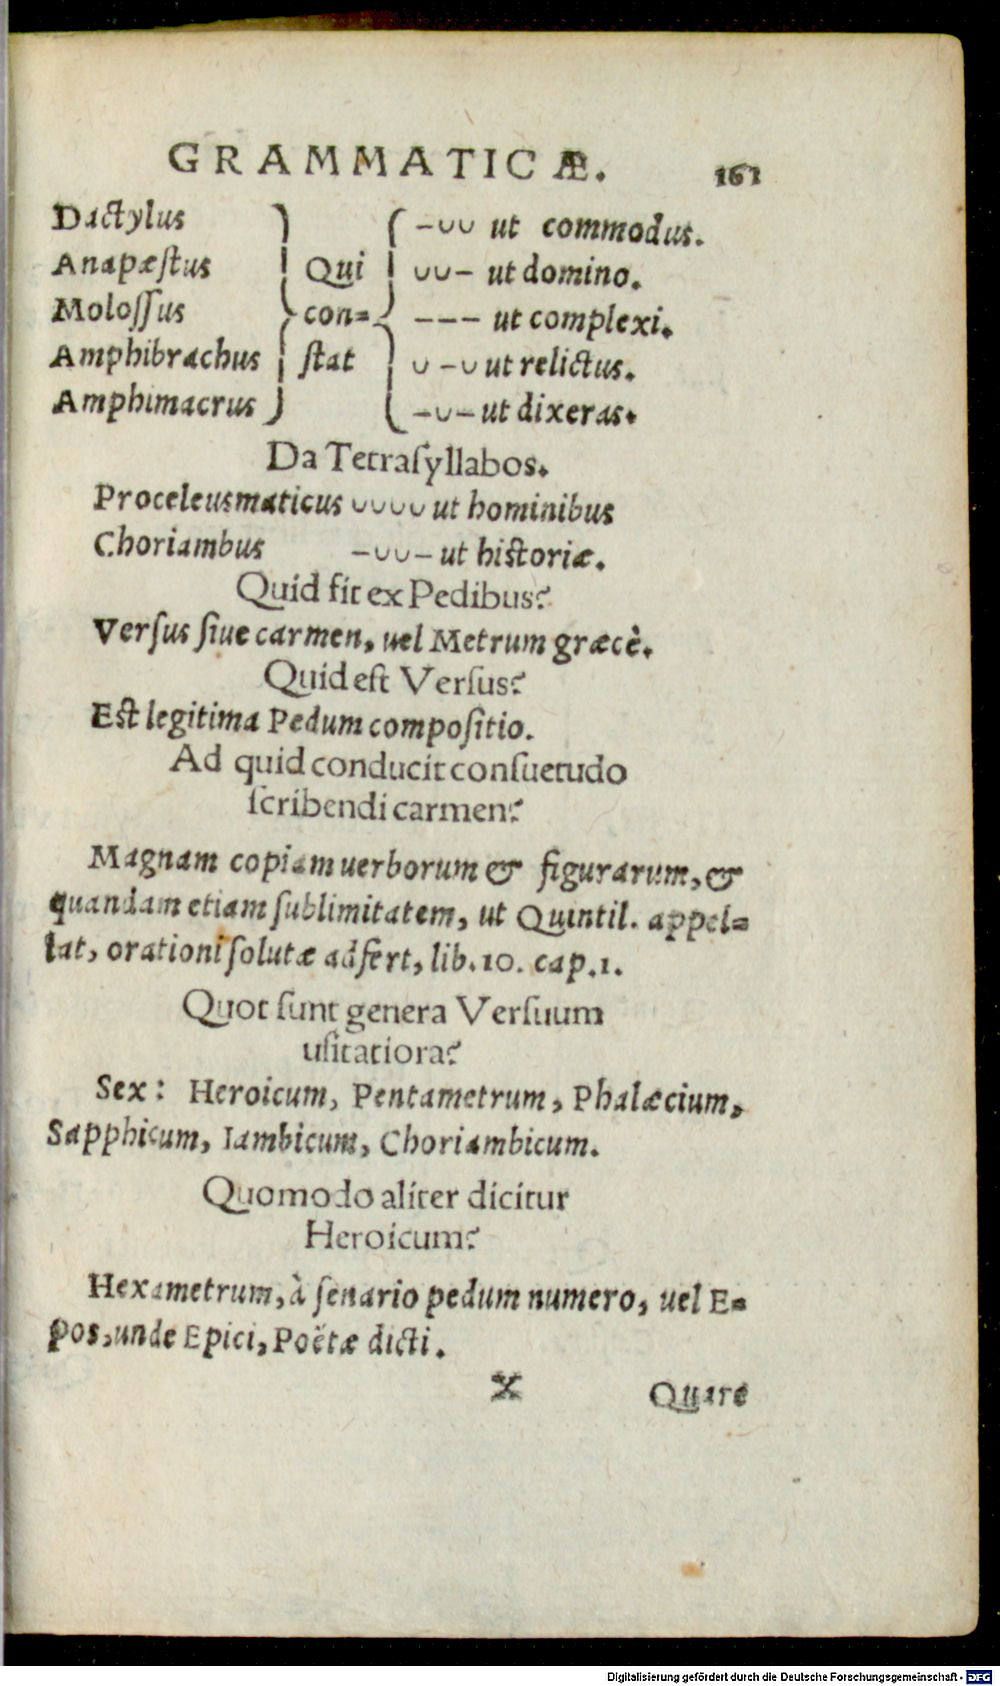 GRAMMATICÆ. 161
Dactylus – ∪ ∪ ut commodus.
Anapæſtus Qui ∪ ∪ – ut domino.
Moloſſus con= – – – ut complexi.
Amphibrachus ſtat ∪ – ∪ ut relictus.
Amphimacrus – ∪ – ut dixeras.
Da Tetraſyllabos.
Proceleusmaticus ∪ ∪ ∪ ∪ ut hominibus
Choriambus – ∪ ∪ – ut hiſtoriæ.
Quid fit ex Pedibus?
Verſus ſiue carmen, uel Metrum græcè.
Quid eſt Verſus?
Eſt legitima Pedum compoſitio.
Ad quid conducit conſuetudo
ſcribendi carmen?
Magnam copiam uerborum & figurarum, &
quandam etiam ſublimitatem, ut Quintil. appel=
lat, orationi ſolutæ adfert, lib. 10. cap. 1.
Quot ſunt genera Verſuum
uſitatiora?
Sex: Heroicum, Pentametrum, Phalæcium,
Sapphicum, Iambicum, Choriambicum.
Quomodo aliter dicitur
Heroicum?
Hexametrum, à ſenario pedum numero, uel E=
pos, unde Epici, Poëtæ dicti.
X Quare
Digitalisierung gefördert durch die Deutsche Forschungsgemeinschaft - DFG